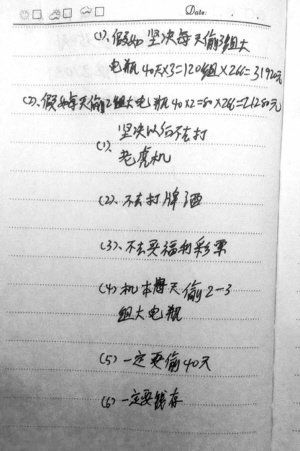 Date.
(1)、假如坚决每天偷3组大
电瓶40天×3=120组×266=31920元
(2)、假如每天偷2组大电瓶40×2=80×266=21280元
坚决以后不去打
(1)、
老虎机
(2)、不去打牌酒
(3)、不去买福利彩票
(4)机本每天偷2-3
组大电瓶
(5)一定要偷40天
(6)一定要钱存